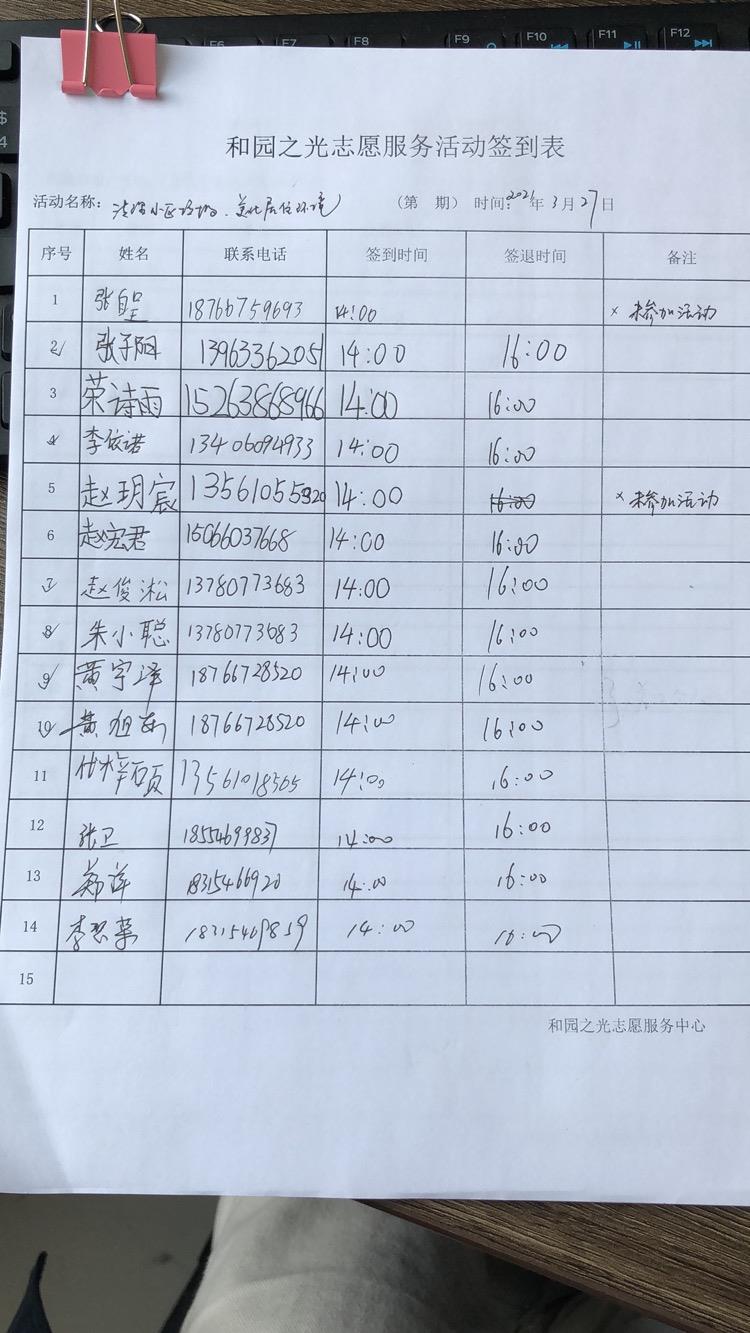 F6 F7 F8 F9 F10 F11 F12
$
4
和园之光志愿服务活动签到表
活动名称: 清理小区垃圾、美化居住环境 (第 期) 时间: 2021年3月27日
序号 姓名 联系电话 签到时间 签退时间 备注
1 张自呈 18766759693 14:00 × 未参加活动
2 张子阳 13963362051 14:00 16:00
3 荣诗雨 15263868966 14:00 16:00
4 李依诺 13406094933 14:00 16:00
5 赵玥宸 13561055920 14:00 16:00 × 未参加活动
6 赵宏君 15066037668 14:00 16:00
7 赵俊淞 13780773683 14:00 16:00
8 朱小聪 13780773683 14:00 16:00
9 黄宇泽 18766728520 14:00 16:00
10 黄旭 18766728520 14:00 16:00
11 代梓硕 13561018565 14:00 16:00
12 张卫 14:00 16:00
13 郑萍 14:00 16:00
14 李 14:00 16:00
15
和园之光志愿服务中心